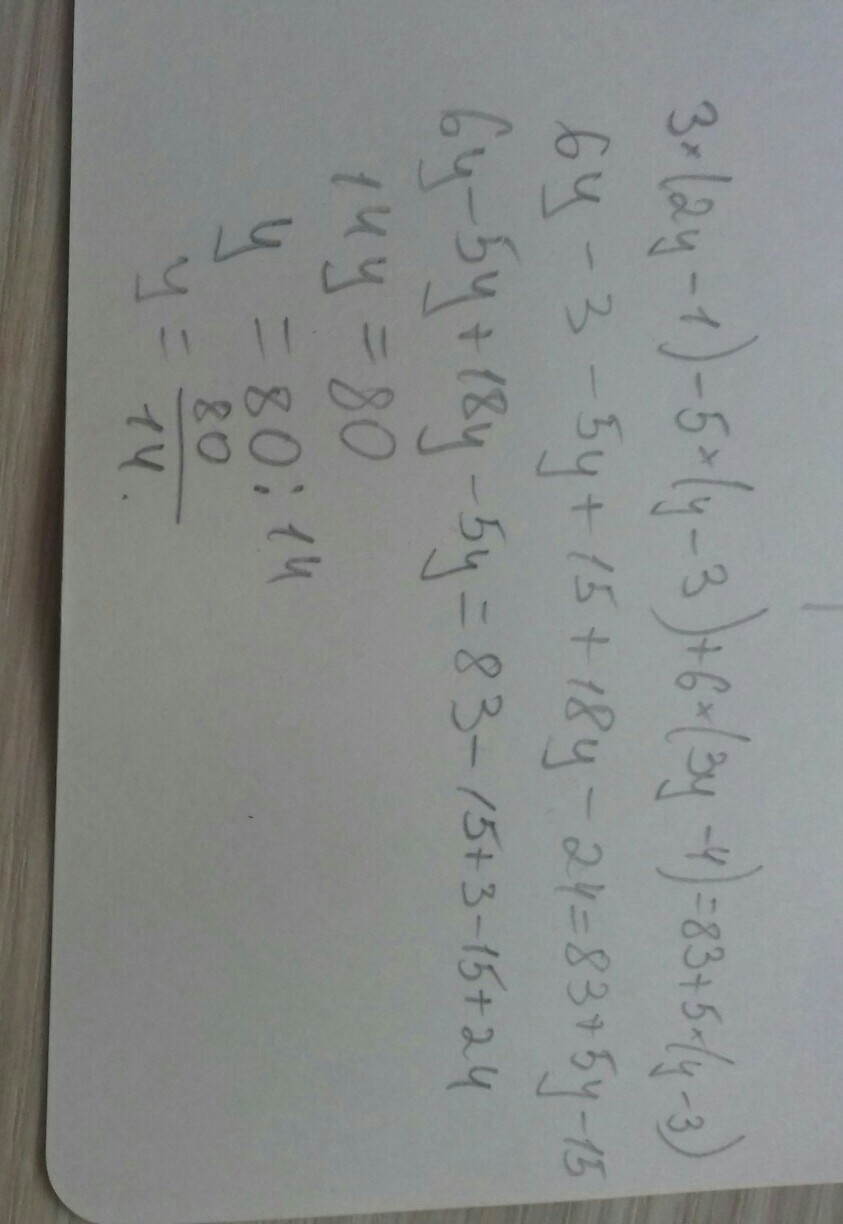 3×(2y-1)-5×(y-3)+6×(3y-4)=83+5×(y-3)
6y-3-5y+15+18y-24=83+5y-15
6y-5y+18y-5y=83-15+3-15+24
14y=80
y=80:14
y=80/14.